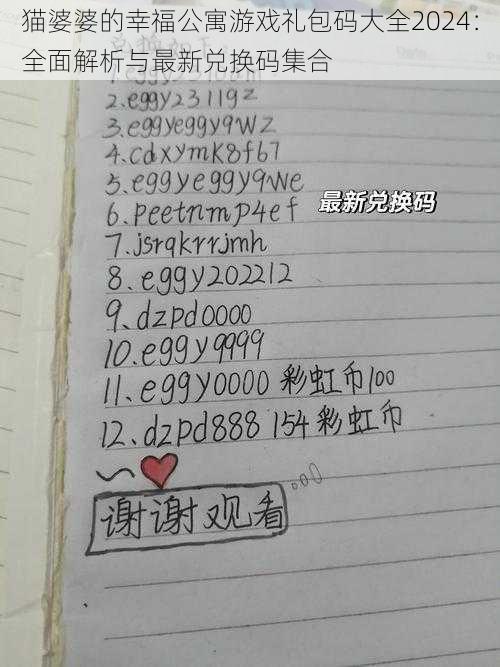 猫婆婆的幸福公寓游戏礼包码大全2024：
全面解析与最新兑换码集合
2.eggy23119z
3.eggyeggy9WZ
4.cdxymk8f67
5.eggyeggy9We
6.peetnmp4ef
最新兑换码
7.jsrqkrrjmh
8.eggy202212
9.dzpd0000
10.eggy9999
11.eggy0000 彩虹币100
12.dzpd888 154彩虹币
谢谢观看